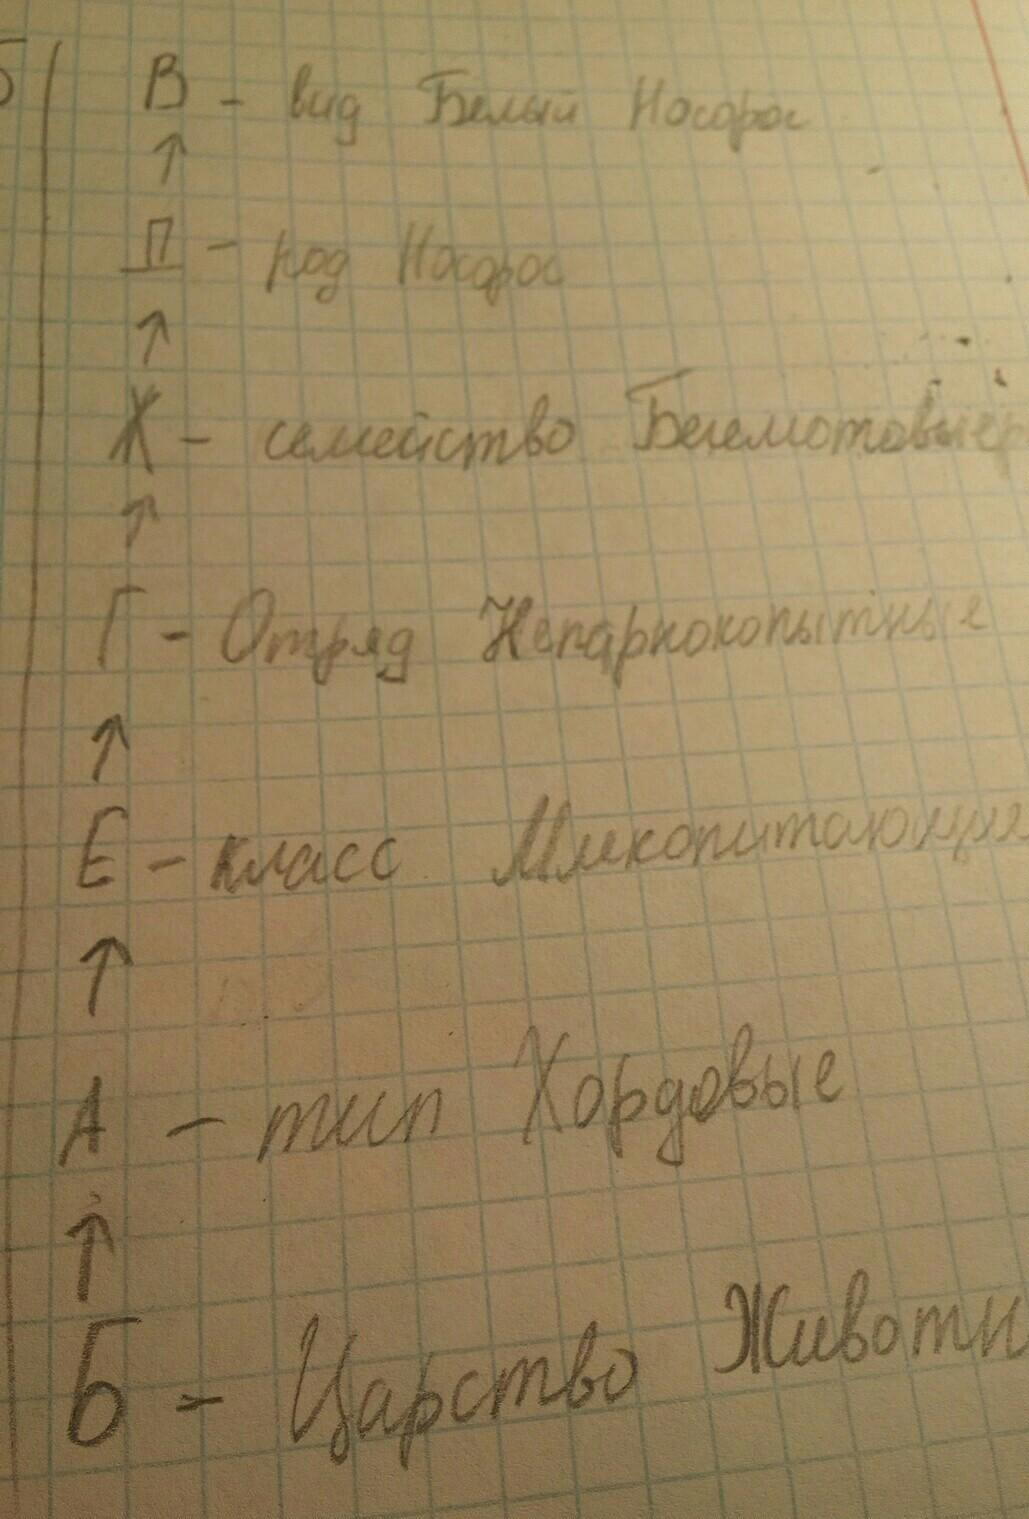 В - вид Белый Носорог
↑
П - род Носорог
↑
Ж - семейство
↑
Г - Отряд Непарнокопытные
↑
Е - класс Млекопитающие
↑
А - тип Хордовые
↑
Б - Царство Животн